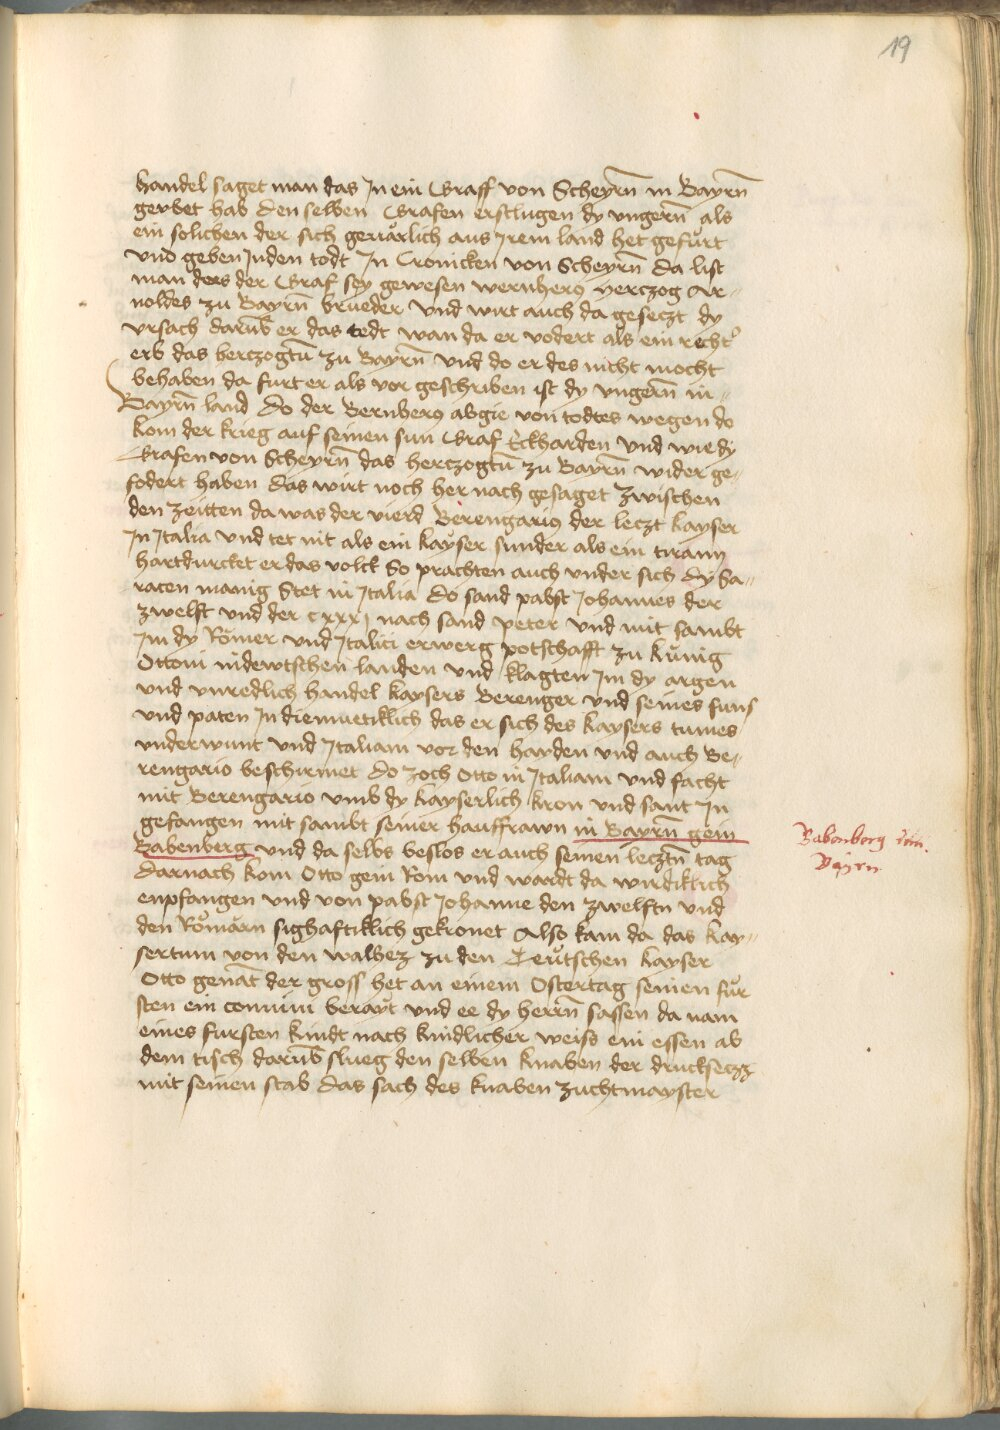 19
handel saget man das In ein Graff von Scheyrn̄ in Bayrn̄
geubet hab den selben Grafen erslugen dy vngern̄ als
ein solichen der sich geuärlich aus Irem land het gefürt
vnd geben Inden todt In Cronicken von Scheyrn̄ da list
man das der Graf sey gewesen wernherꝯ herczog Ar-
noldes zu Bayrn̄ brueder vnd wirt auch da geseczt dy
vrsach darub̄ er das tedt wan da er vodert als ein recht
erb das herczogtū zu Bayrn̄ vnd do er des nicht mocht
behaben da furt er als vor geschriben ist dy vngern̄ in
Bayrn̄ land Do der Bernherꝯ abgie von todtes wegen do
kom der krieg auf seinen sun Graf Eckharden vnd wie dy
Grafen von Scheyrn̄ das herczogtū zu Bayrn̄ wider ge-
fodert haben das wirt noch her nach gesaget Zwischen
den Zeitten da was der vierd Berengariꝯ der leczt kayser
In Italia vnd tet nit als ein kayser sunder als ein tirann
hart durcket er das volck So prachten auch vnder sich dy Sa-
racen manig Stet in Italia Do sand pabst Johannes der
zwelft vnd der cxxxj nach sand peter vnd mit sambt
Im dy Römer vnd Italici erwerg potschafft zu künig
Ottoni indewtschen landen vnd klagten Im dy argen
vnd vnredlich handel kaysers Berenger vnd seines suns
vnd paten In diemuetiklich das er sich des kaysers tumes
vnderwunt vnd Italiam vor den hayden vnd auch Be-
rengario beschirmet do zoch Otto in Italiam vnd facht
mit Berengario vmb dy kayserlich kron vnd sant In
gefangen mit sambt seiner hauffrawn in Bayrn̄ gein
Babenberg vnd da selbs beslos er auch seinen lecztn̄ tag
Babenberg inn
Bairn
darnach kom Otto gein Rom vnd wardt da wirdiklich
enpfangen vnd von pabst Johanne den zwelftn vnd
den Römärn sighaftiklich gekronet Also kam da das kay-
sertum von den walhen zu den Teutschen kayser
Otto genāt der gross het an einem Ostertag seinen für
sten ein conuiui berayt vnd ee dy herrn̄ sassen da nam
eines fursten kindt nach kindlicher weiss ein essen ab
dem tisch darub̄ slueg den selben knaben der drucksecz
mit seinen stab das sach des knaben zuchtmayster